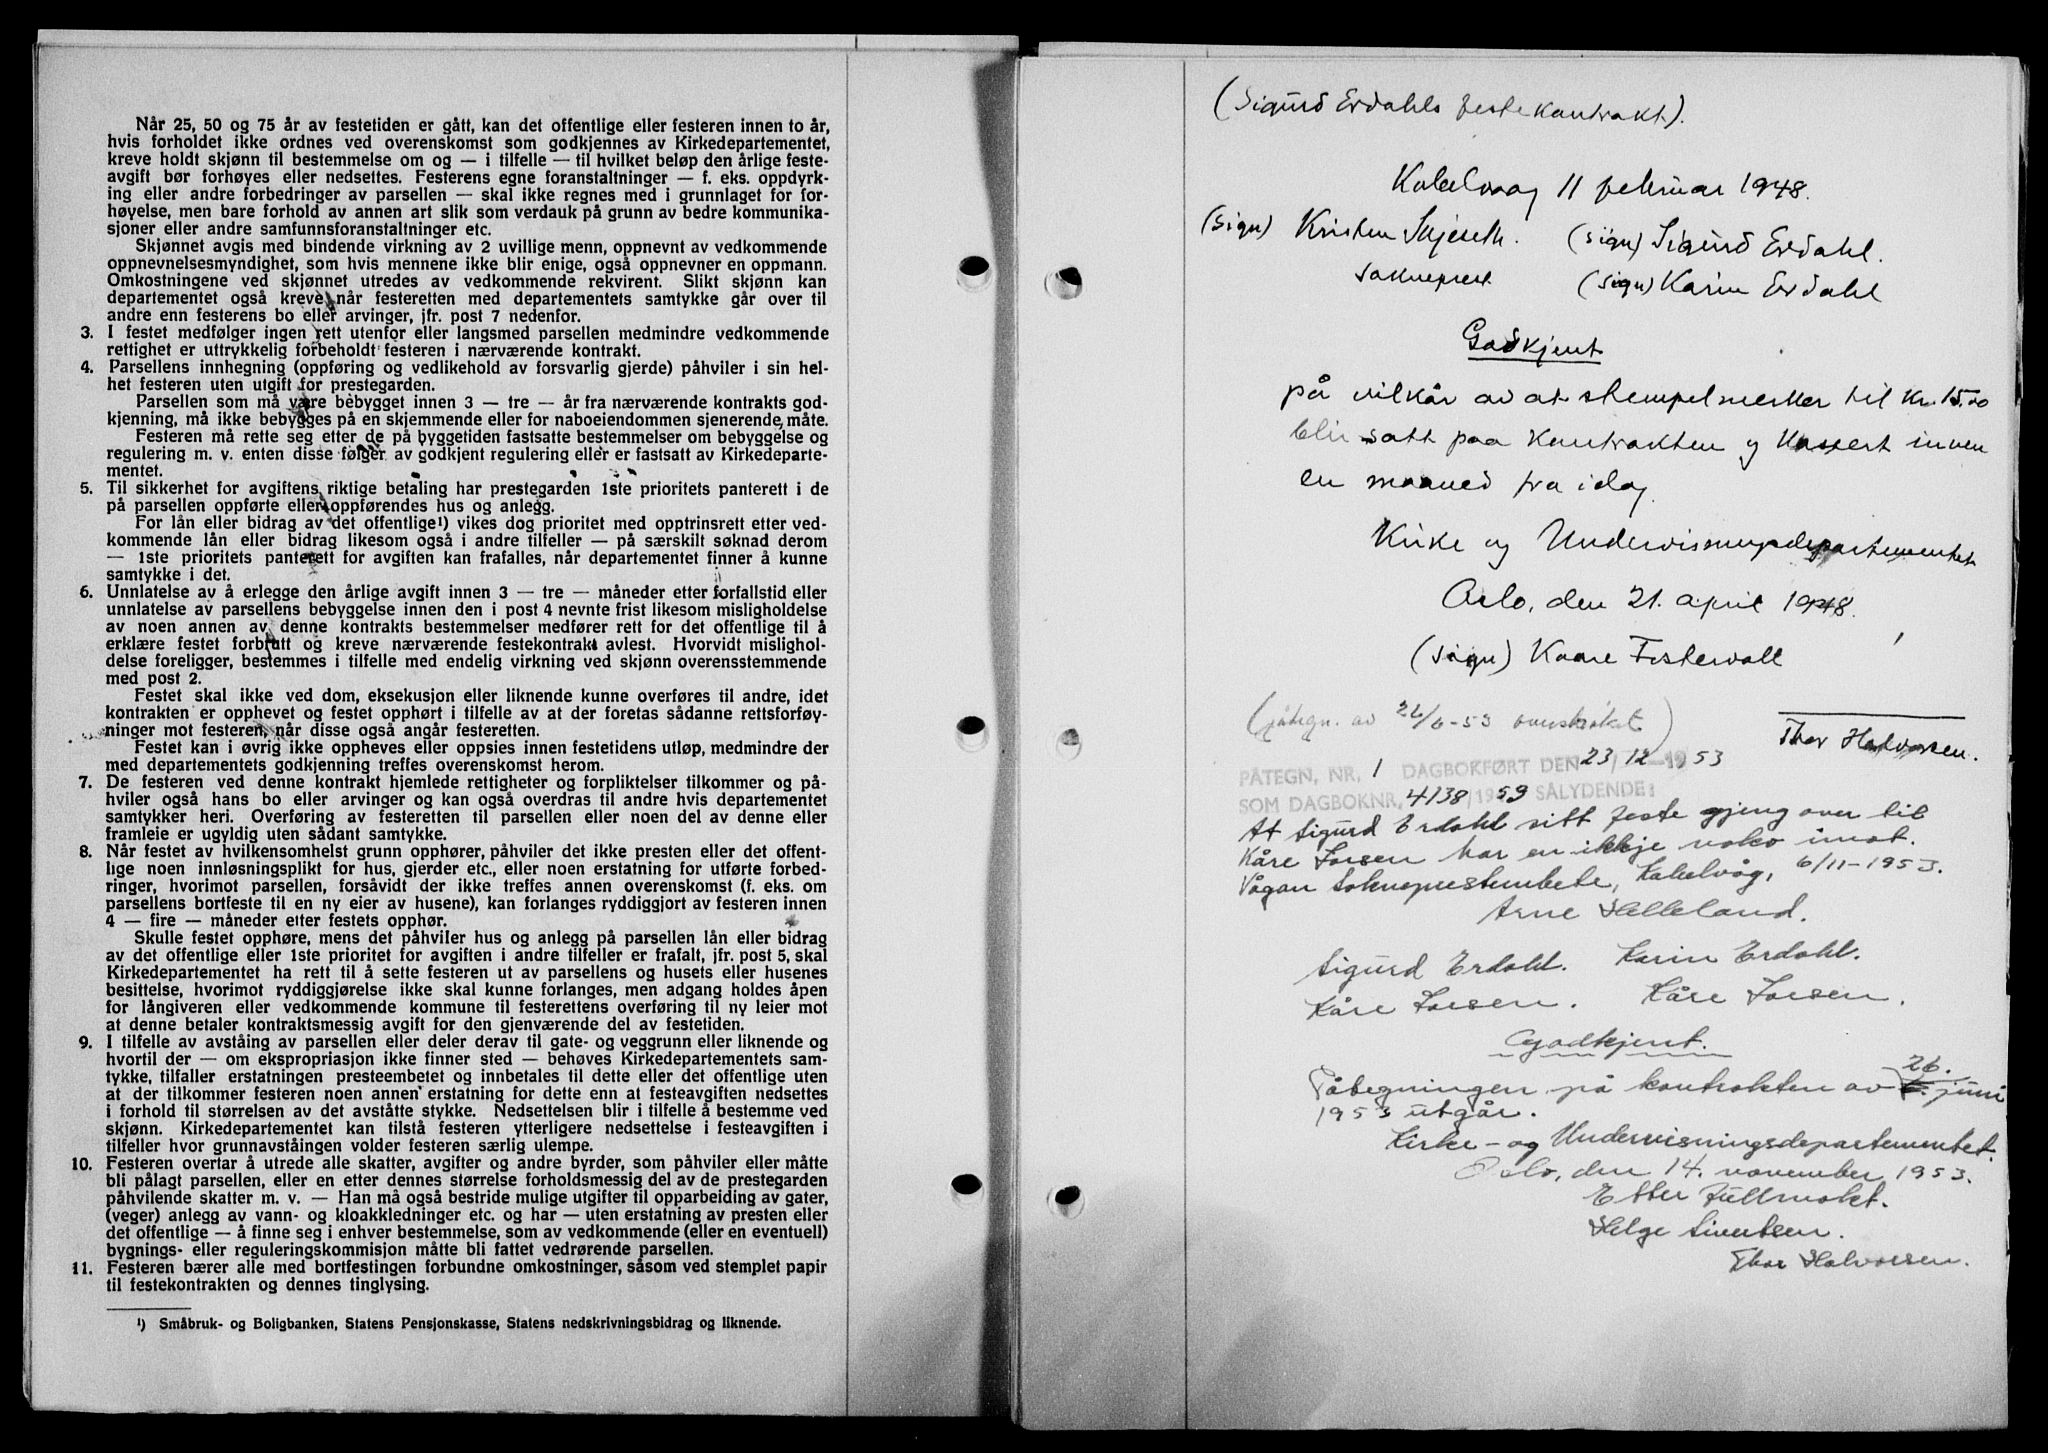 Når 25, 50 og 75 år av festetiden er gått, kan det offentlige eller festeren innen to år,
hvis forholdet ikke ordnes ved overenskomst som godkjennes av Kirkedepartementet,
kreve holdt skjønn til bestemmelse om og — i tilfelle — til hvilket beløp den årlige feste-
avgift bør forhøyes eller nedsettes. Festerens egne foranstaltninger — f. eks. oppdyrk-
ing eller andre forbedringer av parsellen — skal ikke regnes med i grunnlaget for for-
høyelse, men bare forhold av annen art slik som verdauk på grunn av bedre kommunika-
sjoner eller andre samfunnsforanstaltninger etc.
Skjønnet avgis med bindende virkning av 2 uvillige menn, oppnevnt av vedkommende
oppnevnelsesmyndighet, som hvis mennene ikke blir enige, også oppnevner en oppmann.
Omkostningene ved skjønnet utredes av vedkommende rekvirent. Slikt skjønn kan
departementet også kreve når festeretten med departementets samtykke går over til
andre enn festerens bo eller arvinger, jfr. post 7 nedenfor.
3. I festet medfølger ingen rett utenfor eller langsmed parsellen medmindre vedkommende
rettighet er uttrykkelig forbeholdt festeren i nærværende kontrakt.
4. Parsellens innhegning (oppføring og vedlikehold av forsvarlig gjerde) påhviler i sin hel-
het festeren uten utgift for prestegarden.
Parsellen som må være bebygget innen 3 — tre — år fra nærværende kontrakts god-
kjenning, må ikke bebygges på en skjemmende eller for naboeiendommen sjenerende måte.
Festeren må rette seg etter de på byggetiden fastsatte bestemmelser om bebyggelse og
regulering m. v. enten disse følger av godkjent regulering eller er fastsatt av Kirkedeparte-
mentet.
5. Til sikkerhet for avgiftens riktige betaling har prestegarden 1ste prioritets panterett i de
på parsellen oppførte eller oppførendes hus og anlegg.
For lån eller bidrag av det offentlige¹) vikes dog prioritet med opptrinsrett etter ved-
kommende lån eller bidrag likesom også i andre tilfeller — på særskilt søknad derom
— 1ste prioritets panterett for avgiften kan frafalles, når departementet finner å kunne
samtykke i det.
6. Unnlatelse av å erlegge den årlige avgift innen 3 — tre — måneder etter forfallstid eller
unnlatelse av parsellens bebyggelse innen den i post 4 nevnte frist likesom misligholdelse
av noen annen av denne kontrakts bestemmelser medfører rett for det offentlige til å
erklære festet forbrutt og kreve nærværende festekontrakt avlest. Hvorvidt mislighol-
delse foreligger, bestemmes i tilfelle med endelig virkning ved skjønn overensstemmende
med post 2.
Festet skal ikke ved dom, eksekusjon eller liknende kunne overføres til andre, idet
kontrakten er opphevet og festet opphørt i tilfelle av at der foretas sådanne rettsforføy-
ninger mot festeren, når disse også angår festeretten.
Festet kan i øvrig ikke oppheves eller oppsies innen festetidens utløp, medmindre der
med departementets godkjenning treffes overenskomst herom.
7. De festeren ved denne kontrakt hjemlede rettigheter og forpliktelser tilkommer og på-
hviler også hans bo eller arvinger og kan også overdras til andre hvis departementet
samtykker heri. Overføring av festeretten til parsellen eller noen del av denne eller
framleie er ugyldig uten sådant samtykke.
8. Når festet av hvilkensomhelst grunn opphører, påhviler det ikke presten eller det offent-
lige noen innløsningsplikt for hus, gjerder etc., eller noen erstatning for utførte forbed-
ringer, hvorimot parsellen, forsåvidt der ikke treffes annen overenskomst (f. eks. om
parsellens bortfeste til en ny eier av husene), kan forlanges ryddiggjort av festeren innen
4 — fire — måneder etter festets opphør.
Skulle festet opphøre, mens det påhviler hus og anlegg på parsellen lån eller bidrag
av det offentlige eller 1ste prioritet for avgiften i andre tilfeller er frafalt, jfr. post 5, skal
Kirkedepartementet ha rett til å sette festeren ut av parsellens og husets eller husenes
besittelse, hvorimot ryddiggjørelse ikke skal kunne forlanges, men adgang holdes åpen
for långiveren eller vedkommende kommune til festerettens overføring til ny leier mot
at denne betaler kontraktsmessig avgift for den gjenværende del av festetiden.
9. I tilfelle av avståing av parsellen eller deler derav til gate- og veggrunn eller liknende og
hvortil der — om ekspropriasjon ikke finner sted — behøves Kirkedepartementets sam-
tykke, tilfaller erstatningen presteembetet og innbetales til dette eller det offentlige uten
at der tilkommer festeren noen annen erstatning for dette enn at festeavgiften nedsettes
i forhold til størrelsen av det avståtte stykke. Nedsettelsen blir i tilfelle å bestemme ved
skjønn. Kirkedepartementet kan tilstå festeren ytterligere nedsettelse i festeavgiften i
tilfeller hvor grunnavståingen volder festeren særlig ulempe.
10. Festeren overtar å utrede alle skatter, avgifter og andre byrder, som påhviler eller måtte
bli pålagt parsellen, eller en etter dennes størrelse forholdsmessig del av de prestegarden
påhvilende skatter m. v. — Han må også bestride mulige utgifter til opparbeiding av gater,
(veger) anlegg av vann- og kloakkledninger etc. og har — uten erstatning av presten eller
det offentlige — å finne seg i enhver bestemmelse, som av vedkommende (eller en eventuell)
bygnings- eller reguleringskommisjon måtte bli fattet vedrørende parsellen.
11. Festeren bærer alle med bortfestingen forbundne omkostninger, såsom ved stemplet papir
til festekontrakten og dennes tinglysing.
¹) Småbruk- og Boligbanken, Statens Pensjonskasse, Statens nedskrivningsbidrag og liknende.
(Sigurd Erdahls festekontrakt).
Kabelvaag 11 februar 1948.
(sign) Kristen Skjeseth. (sign) Sigurd Erdahl.
sokneprest (sign) Karin Erdahl
Godkjent
på vilkår av at stempelmerker til kr. 15.00
blir satt paa kontrakten og kassert innen
en maaned fra idag.
Kirke og Undervisningsdepartementet
Oslo, den 21. april 1948.
(sign) Kaare Fostervoll
(påtegn. av 26/6-53 overstrøket)
Thor Halvorsen.
PÅTEGN. NR. 1 DAGBOKFØRT DEN 23/12-1953
SOM DAGBOKNR. 4138/1953 SÅLYDENDE:
At Sigurd Erdahl sitt feste gjeng over til
Kåre Larsen har en ikkje noko imot.
Vågan Sokneprestembete, Kabelvåg, 6/11-1953.
Arne Helleland.
Sigurd Erdahl. Karin Erdahl.
Kåre Larsen. Kåre Larsen.
Godkjent.
26.
Påtegningen på kontrakten av juni
1953 utgår.
Kirke- og Undervisningsdepartementet.
Oslo, den 14. november 1953.
Etter fullmakt.
Helge Sivertsen.
Thor Halvorsen.